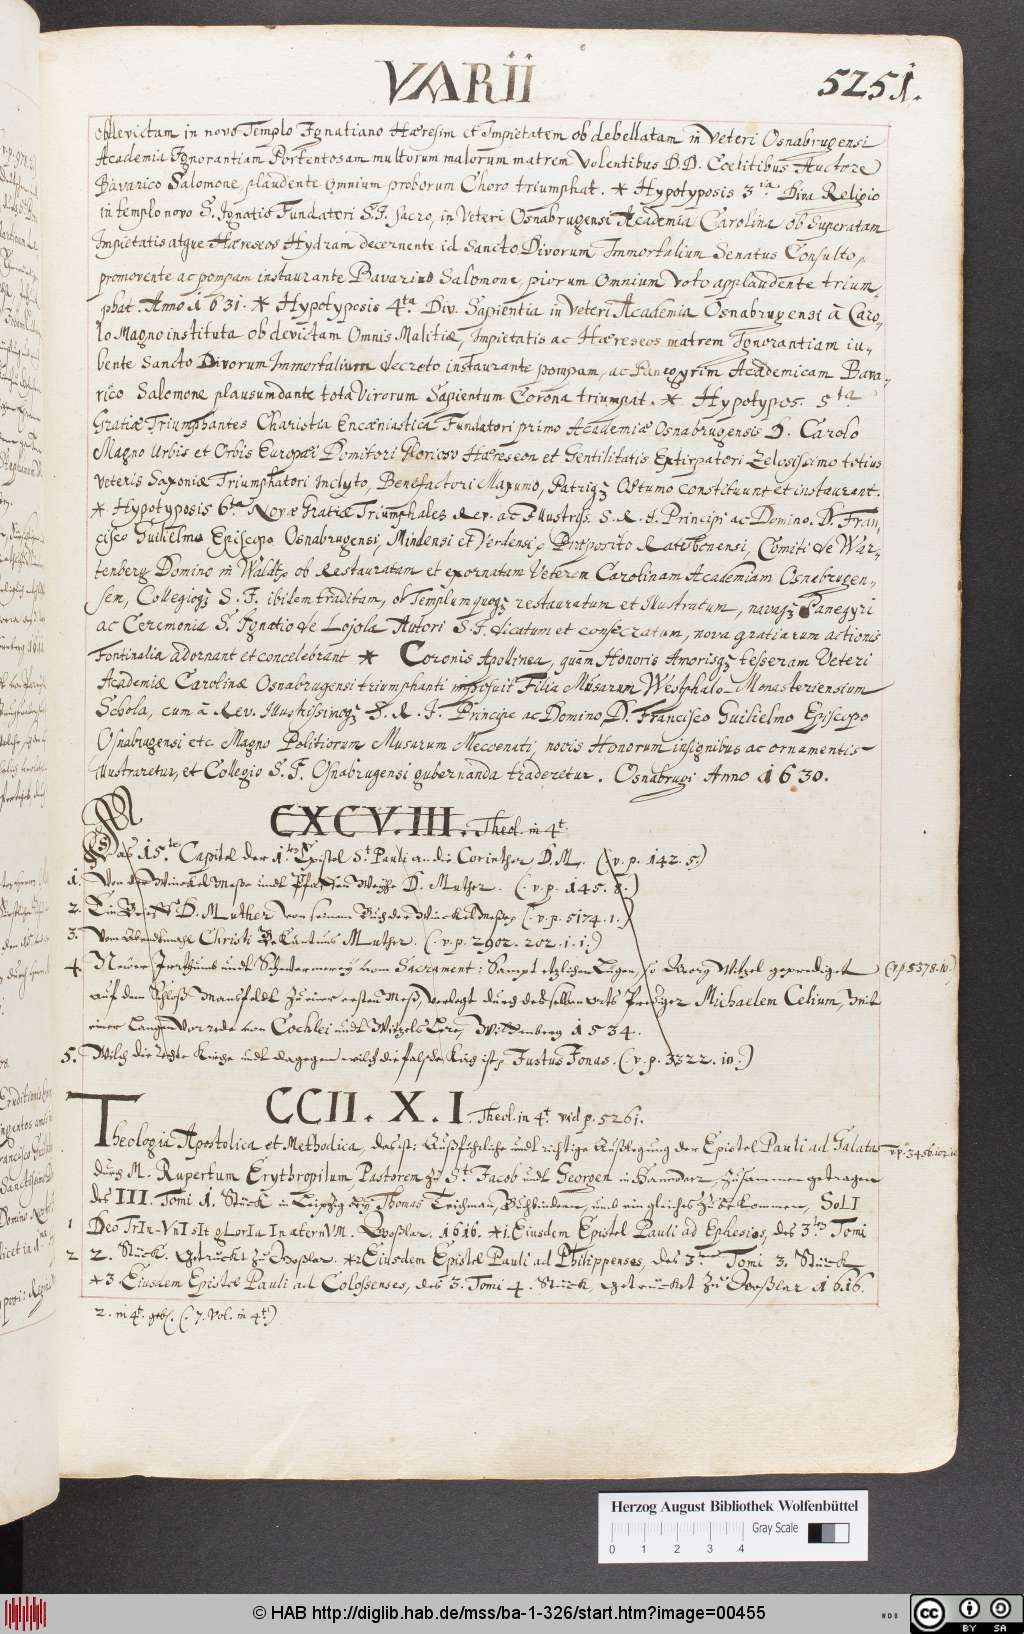 VARII
5251.
obdevictam in novo Templo Ignatiano Hæresim et Impietatem ob debellatam in Veteri Osnabrugensi
Academia Ignorantiam Portentosam multorum malorum matrem Volentibus D.D. Cœlitibus Auctore
Bavarico Salomone, plaudente omnium proborum Choro triumphat. * Hypotyposis 3tia Diva Religio
in templo novo S. Ignatio Fundatori S.I. sacro, in Veteri Osnabrugensi Academia Carolina ob Superatam
Impietatis atque Hæreseos Hydram decernente id Sancto Divorum Immortalium Senatus Consulto,
promovente ac pompam instaurante Bavarico Salomone, piorum Omnium Voto applaudente trium-
phat. Anno 1631. * Hypotyposis 4ta Div. Sapientia in Veteri Academia Osnabrugensi â Caro-
lo Magno instituta ob devictam Omnis Malitiæ, Impietatis ac Hæreseos matrem Ignorantiam iu-
bente Sancto Divorum Immortalium decreto instaurante pompam, ac Panegyrim Academicam Bava-
rico Salomone plausumdante tota Virorum Sapientum Corona triumpat. * Hypotypos. 5ta
Gratiæ Triumphantes Charistia Encæniastica Fundatori primo Academiæ Osnabrugensis D. Carolo
Magno Urbis et Orbis Europæi Domitori Glorioso Hæreseon et Gentilitatis Extirpatori Zelosissimo totius
Veteris Saxoniæ Triumphatori Inclyto, Benefactori Maxumo, Patriq3 Optumo constituunt et instaurant.
* Hypotyposis 6ta Novæ Gratiæ Triumphales Rev. ac Illustriss. S.R.I. Principi ac Domino. D. Fran-
cisco Guilielmo Episcopo Osnabrugensi, Mindensi et Verdensi, Præposito Ratisbonensi, Comiti de War-
tenberg Domino in Waldt, ob Restauratam et exornatam Veterem Carolinam Academiam Osnabrugen-
sem, Collegioq3 S.I. ibidem traditam, ob Templumquoq3 restauratum et Illustratum, novaq3 Panegyri
ac Ceremonia S. Ignatio de Lojola Autori S.I. dicatum et consecratum, nova gratiarum actionis
Fontinalia adornant et concelebrant * Coronis Apollinea, quam Honoris Amorisq3 tesseram Veteri
Academiæ Carolinæ Osnabrugensi triumphanti imposuit Filia Musarum Westphalo-Monasteriensium
Schola, cum â Rev. Illustrissimoq3 S.R.I. Principe ac Domino, D. Francisco Guilielmo Episcopo
Osnabrugensi etc. Magno Politiorum Musarum Mecoenati, novis Honorum insignibus ac ornamentis
illustraretur, et Collegio S.I. Osnabrugensi gubernanda traderetur. Osnabrugi Anno 1630.
CXCV.III. Theol. in 4t.
Das 15.te Capitel der 1.ten Epistel St Pauli an die Corinther D.M. (v.p. 142.5.)
1. Von der Winckel Messe undt Pfaffen Weyhe D. Luther. (v.p. 145.8.)
2. Ein Brieff D. M. Luther von seinem Buch der Winckel Messe, (v.p. 5174.1.)
3. Vom Abendtmahl Christi Bekäntnus M Luther. (v.p. 2902. 202.1.1.)
4. Newer Irrthumb undt Schwermerey vom Sacrament: Sampt etzlichen Lügen, so Georg Witzel geprediget (v.p. 5378.10.)
auf dem Schloß Mansfeldt zu einer ersten Meß, verlegt durch desselben orts Prediger Michaelem Celium, Mit
einer Langen Vorrede von Cochlei undt Witzels Lere, Wittemberg 1534.
5. Wilch die rechte Kirche undt dagegen wilch die falsche Kirch ist, Justus Jonas. (v.p. 3322.10.)
CCII. X. I. Theol. in 4t. vid p. 5261.
Theologia Apostolica et Methodica, das ist: Außführliche undt richtige Außlegung der Epistel Pauli ad Galatas v.p. 3456.102.11
durch M. Rupertum Erythropilum Pastoren zu St Jacob undt Georgen in Hannover, zusammen getragen
des III. Tomi 1. Stück in Leipzig bey Thomas Teichman, Buchbindern, und ein gleiches zu bekommen, SoLI
1 Deo TrIn-VnI sIt gLorIa In æternVM. Goßlar. 1616. *1. Eiusdem Epistel Pauli ad Ephesios, des 3ten Tomi
2 2. Stück. Getruckt zu Goßlar. *2 Eiusdem Epistel Pauli ad Philippenses, des 3ten Tomi 3. Stück
*3. Eiusdem Epistel Pauli ad Colossenses, des 3. Tomi 4. Stück, getruckt zu Goßlar 1616.
2. in 4t. geb. (7. Vol. in 4t.)
Herzog August Bibliothek Wolfenbüttel
Gray Scale
0 1 2 3 4
© HAB http://diglib.hab.de/mss/ba-1-326/start.htm?image=00455
cc BY SA